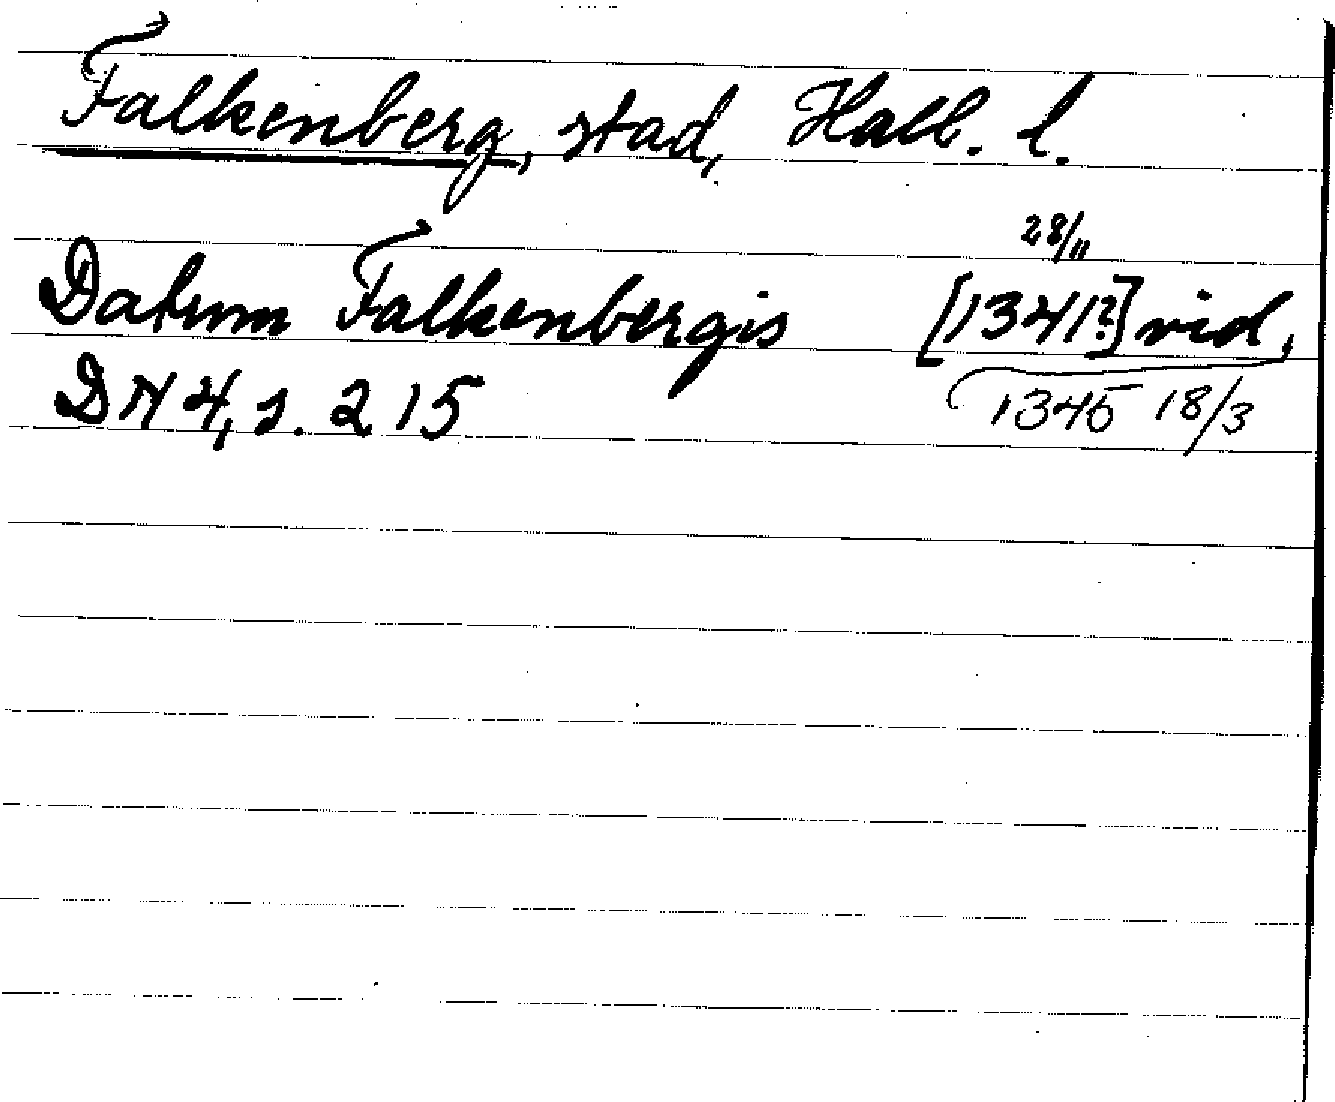 Falkenberg, stad, Hall. l.
28/11
Datum Falkenbergis [1341?] vid,
DN 4, s. 215 1345 18/3